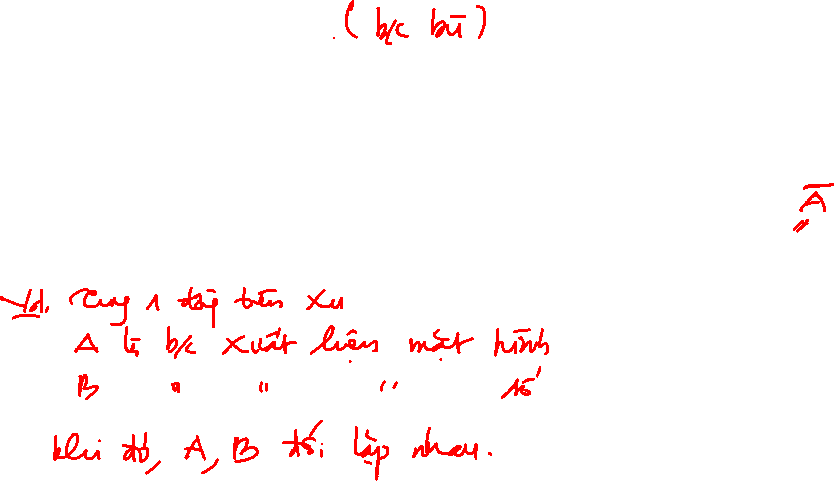 (b/c bù)
Ā
Vd. Tung 1 đồng tiền xu
A là b/c xuất hiện mặt hình
B " " " số
khi đó, A, B đối lập nhau.